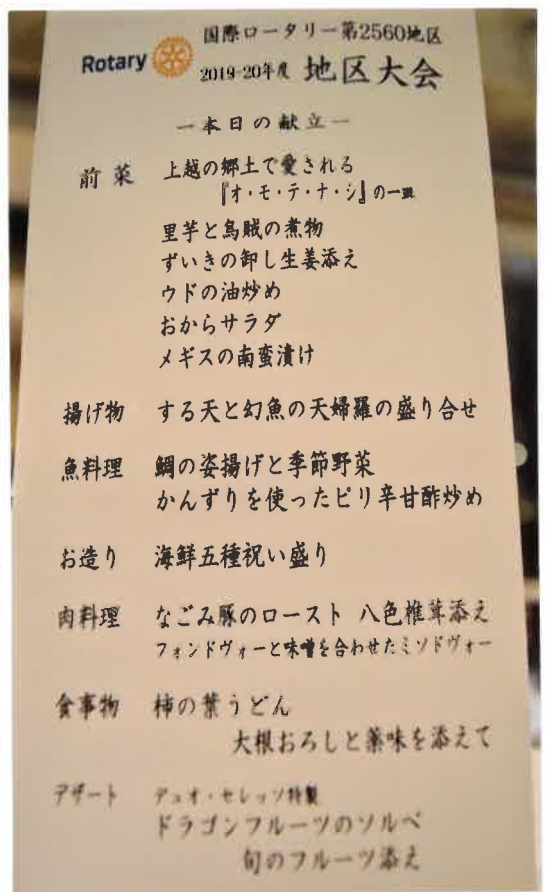 国際ロータリー第2560地区
Rotary
2019-20年度 地区大会
―本日の献立―
前菜 上越の郷土で愛される
『オ・モ・テ・ナ・シ』の一皿
里芋と烏賊の煮物
ずいきの卸し生姜添え
ウドの油炒め
おからサラダ
メギスの南蛮漬け
揚げ物 する天と幻魚の天婦羅の盛り合せ
魚料理 鯛の姿揚げと季節野菜
かんずりを使ったピリ辛甘酢炒め
お造り 海鮮五種祝い盛り
肉料理 なごみ豚のロースト 八色椎茸添え
フォンドヴォーと味噌を合わせたミソドヴォー
食事物 柿の葉うどん
大根おろしと薬味を添えて
デザート デュオ・セレッソ特製
ドラゴンフルーツのソルベ
旬のフルーツ添え